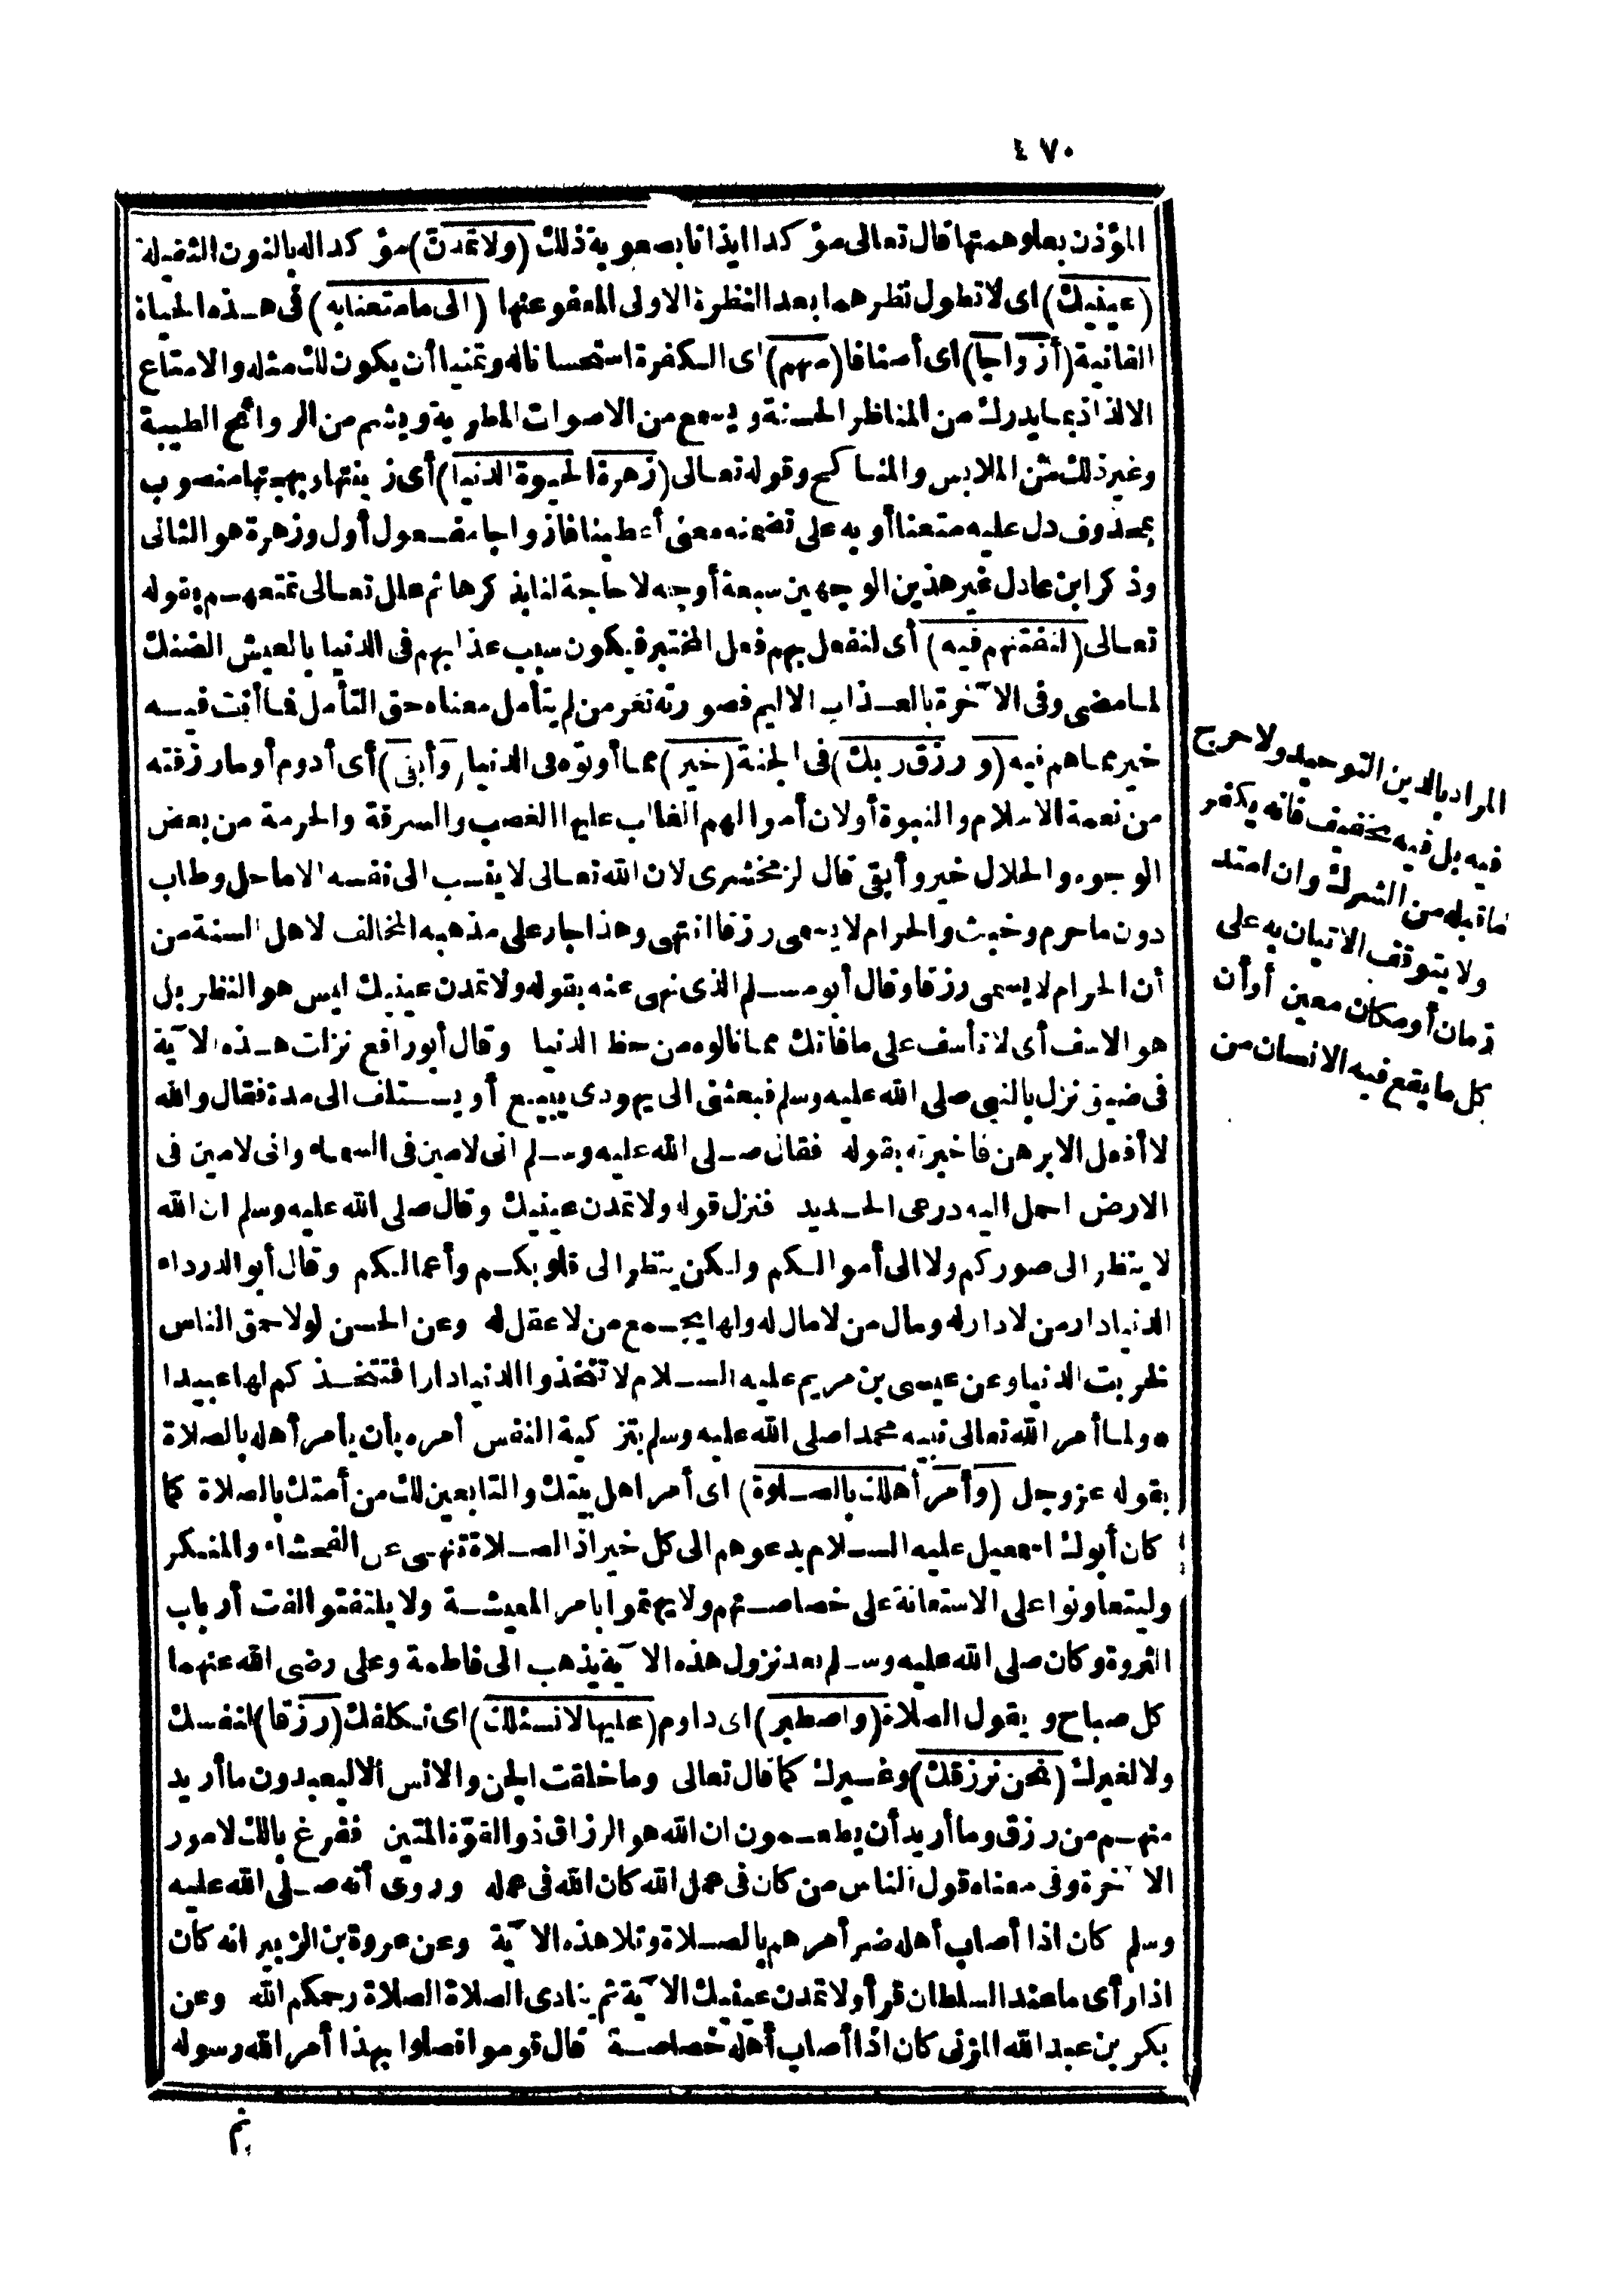 ٤٧٠
المؤذن بعلو همتها قال تعالى مؤكدا ايذانا بصعوبة ذلك (ولا تمدن) مؤكدا له بالنون الثقيلة
(عينيك) اى لا تطول نظرهما بعد النظرة الاولى المعفو عنها (الى ما متعنا به) فى هذه الحياة
الفانية (أزواجا) اى أصنافا (منهم) اى الكفرة استحسانا له وتمنيا أن يكون لك مثله والامتاع
الالذاذ بما يدرك من المناظر الحسنة ويسمع من الاصوات المطربة ويشم من الروائح الطيبة
وغير ذلك من الملابس والمناكح وقوله تعالى (زهرة الحيوة الدنيا) أى زينتها وبهجتها منصوب
بمحذوف دل عليه متعنا أو به على تضمنه معنى أعطينا فازواجا مفعول أول وزهرة هو الثانى
وذكر ابن عادل غير هذين الوجهين سبعة أوجه لا حاجة لنا بذكرها ثم علل تعالى تمتعهم بقوله
تعالى (لنفتنهم فيه) أى لنفعل بهم فعل المختبر فيكون سبب عذابهم فى الدنيا بالعيش الضنك
لما مضى وفى الآخرة بالعذاب الاليم فصورته تغر من لم يتأمل معناه حق التأمل فما أنت فيه
خير مما هم فيه (و رزق ربك) فى الجنة (خير) مما أوتوه فى الدنيا (وأبقى) أى أدوم أو ما رزقته
من نعمة الاسلام والنبوة أولان أموالهم الغالب عليها الغصب والسرقة والحرمة من بعض
الوجوه والحلال خير وأبقى قال الزمخشرى لان الله تعالى لا ينسب الى نفسه الا ما حل وطاب
دون ما حرم وخبث والحرام لا يسمى رزقا انتهى وهذا جار على مذهبه المخالف لاهل السنة من
أن الحرام لا يسمى رزقا وقال أبو مسلم الذى نهى عنه بقوله ولا تمدن عينيك ليس هو النظر بل
هو الاسف أى لا تأسف على ما فاتك مما نالوه من حظ الدنيا وقال أبو رافع نزلت هذه الآية
فى ضيف نزل بالنبى صلى الله عليه وسلم فبعثنى الى يهودى يبيع أو يستلف الى مدة فقال والله
لا أفعل الا برهن فاخبرته بقوله فقال صلى الله عليه وسلم انى لامين فى السماء وانى لامين فى
الارض احمل اليه درعى الحديد فنزل قوله ولا تمدن عينيك وقال صلى الله عليه وسلم ان الله
لا ينظر الى صوركم ولا الى أموالكم ولكن ينظر الى قلوبكم وأعمالكم وقال أبو الدرداء
الدنيا دار من لا دار له ومال من لا مال له ولها يجمع من لا عقل له وعن الحسن لولا حمق الناس
لخربت الدنيا وعن عيسى بن مريم عليه السلام لا تتخذوا الدنيا دارا فتتخذكم لها عبيدا
* ولما أمر الله تعالى نبيه محمدا صلى الله عليه وسلم بتزكية النفس أمره بأن يأمر أهله بالصلاة
بقوله عز وجل (وأمر أهلك بالصلوة) اى أمر اهل بيتك والتابعين لك من أمتك بالصلاة كما
كان أبوك اسمعيل عليه السلام يدعوهم الى كل خير اذ الصلاة تنهى عن الفحشاء والمنكر
وليتعاونوا على الاستعانة على خصاصتهم ولا يهتموا بامر المعيشة ولا يلتفتوا لفت أرباب
الثروة وكان صلى الله عليه وسلم بعد نزول هذه الآية يذهب الى فاطمة وعلى رضى الله عنهما
كل صباح ويقول الصلاة (واصطبر) اى داوم (عليها لا نسئلك) اى نكلفك (رزقا) لنفسك
ولا لغيرك (نحن نرزقك) وغيرك كما قال تعالى وما خلقت الجن والانس الا ليعبدون ما أريد
منهم من رزق وما أريد أن يطعمون ان الله هو الرزاق ذو القوة المتين ففرغ بالك لامور
الآخرة وفى معناه قول الناس من كان فى عمل الله كان الله فى عمله وروى أنه صلى الله عليه
وسلم كان اذا أصاب أهله ضر أمرهم بالصلاة وتلا هذه الآية وعن عروة بن الزبير انه كان
اذا رأى ما عند السلطان قرأ ولا تمدن عينيك الآية ثم ينادى الصلاة الصلاة رحمكم الله وعن
بكر بن عبد الله المزنى كان اذا أصاب أهله خصاصة قال قوموا فصلوا بهذا أمر الله رسوله
المراد بالدين التوحيد ولا حرج
فيه بل فيه تخفيف فانه يكفر
ما قبله من الشرك وان امتد
ولا يتوقف الاتيان به على
زمان أو مكان معين أو أن
كل ما يقع فيه الانسان من
ثم